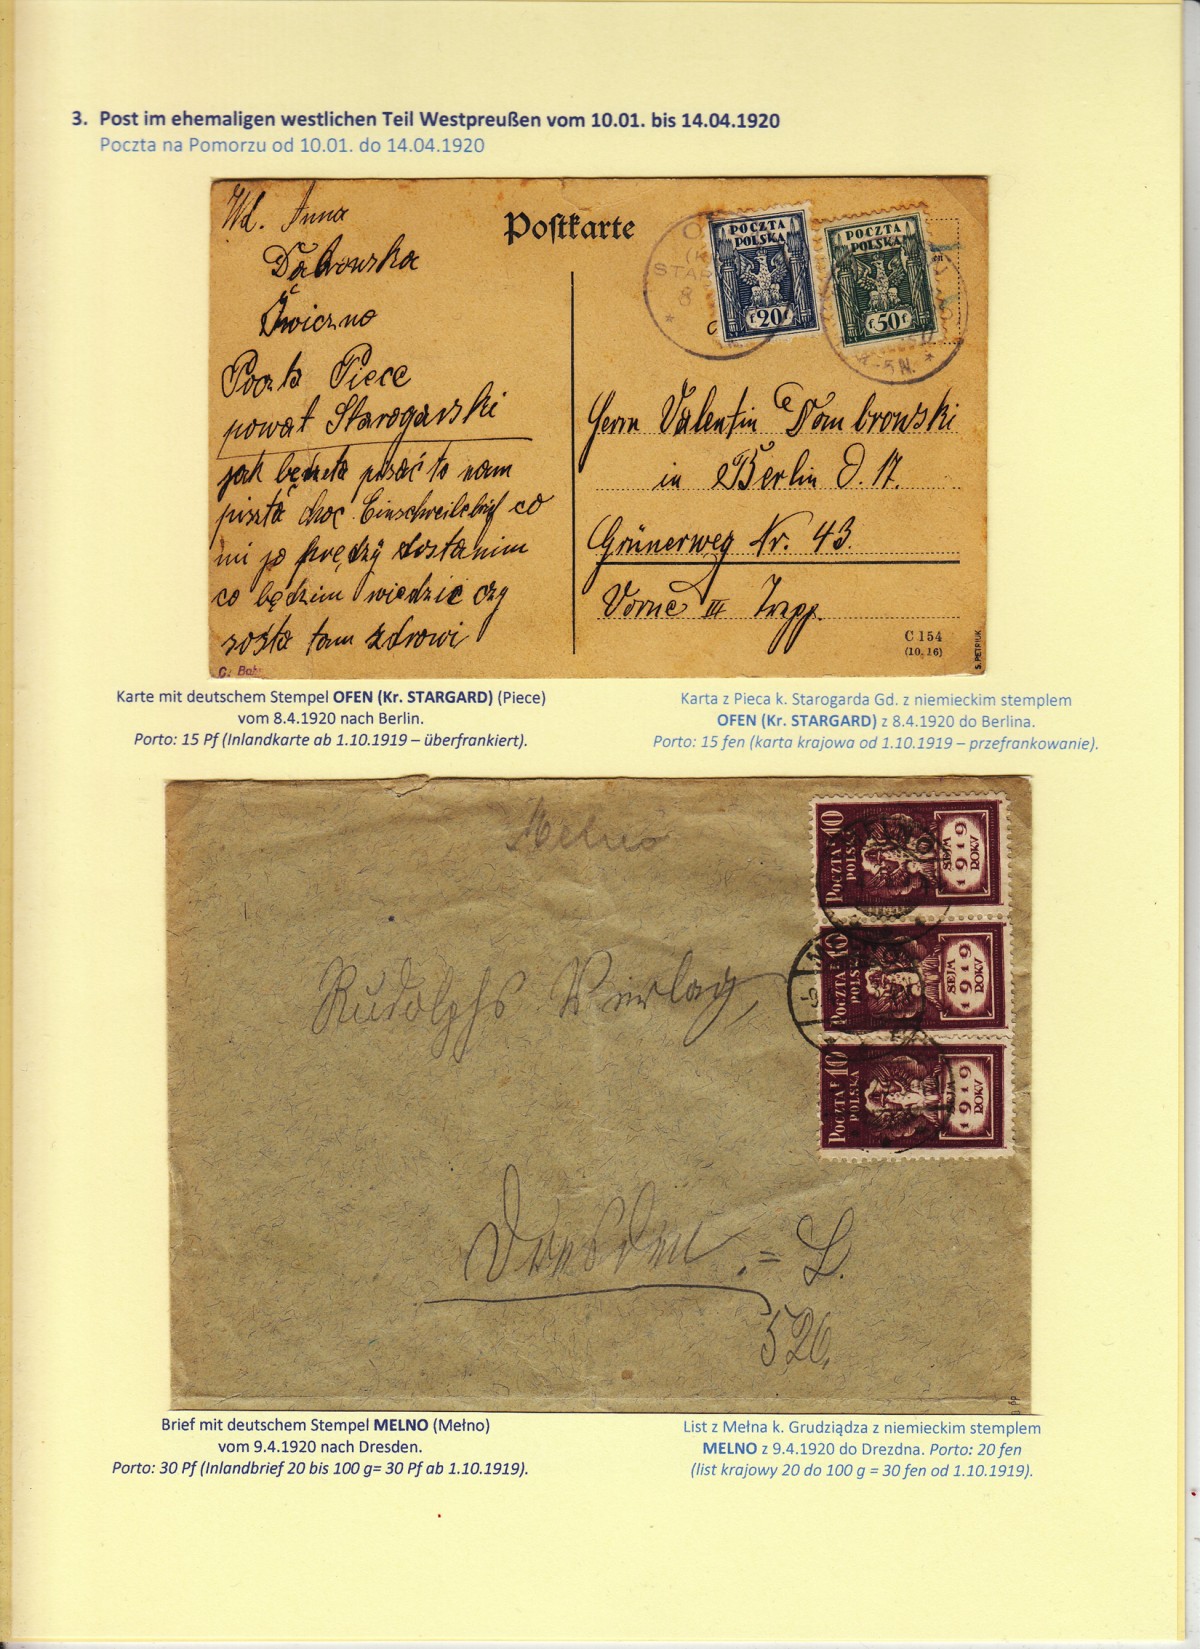 3. Post im ehemaligen westlichen Teil Westpreußen vom 10.01. bis 14.04.1920
Poczta na Pomorzu od 10.01. do 14.04.1920
Wd. Anna
Dabrowska
Żwiczno
Poczta Piece
powat Starogarski
jak będzeta pisać to nam
piszta choc Einschreibebrief co
mi jo prędzy dostanim
co będzim wiedzic czy
sozta tam zdrowi
C. Bahr
Postkarte
POCZTA
POLSKA
f 20 f
POCZTA
POLSKA
f 50 f
Herrn Valentin Dombrowski
in Berlin O. 17.
Grünerweg Nr. 43.
Vorne III Trepp.
C 154
(10. 16)
S. PETRIUK
Karte mit deutschem Stempel OFEN (Kr. STARGARD) (Piece)
vom 8.4.1920 nach Berlin.
Porto: 15 Pf (Inlandkarte ab 1.10.1919 – überfrankiert).
Karta z Pieca k. Starogarda Gd. z niemieckim stemplem
OFEN (Kr. STARGARD) z 8.4.1920 do Berlina.
Porto: 15 fen (karta krajowa od 1.10.1919 – przefrankowanie).
Melno
POCZTA F 10
POLSKA
SEJM
1919
ROKU
POCZTA F 10
POLSKA
SEJM
1919
ROKU
POCZTA F 10
POLSKA
SEJM
1919
ROKU
Rudolphs Verlag,
Dresden = L.
526.
Brief mit deutschem Stempel MELNO (Mełno)
vom 9.4.1920 nach Dresden.
Porto: 30 Pf (Inlandbrief 20 bis 100 g= 30 Pf ab 1.10.1919).
List z Mełna k. Grudziądza z niemieckim stemplem
MELNO z 9.4.1920 do Drezdna. Porto: 20 fen
(list krajowy 20 do 100 g = 30 fen od 1.10.1919).